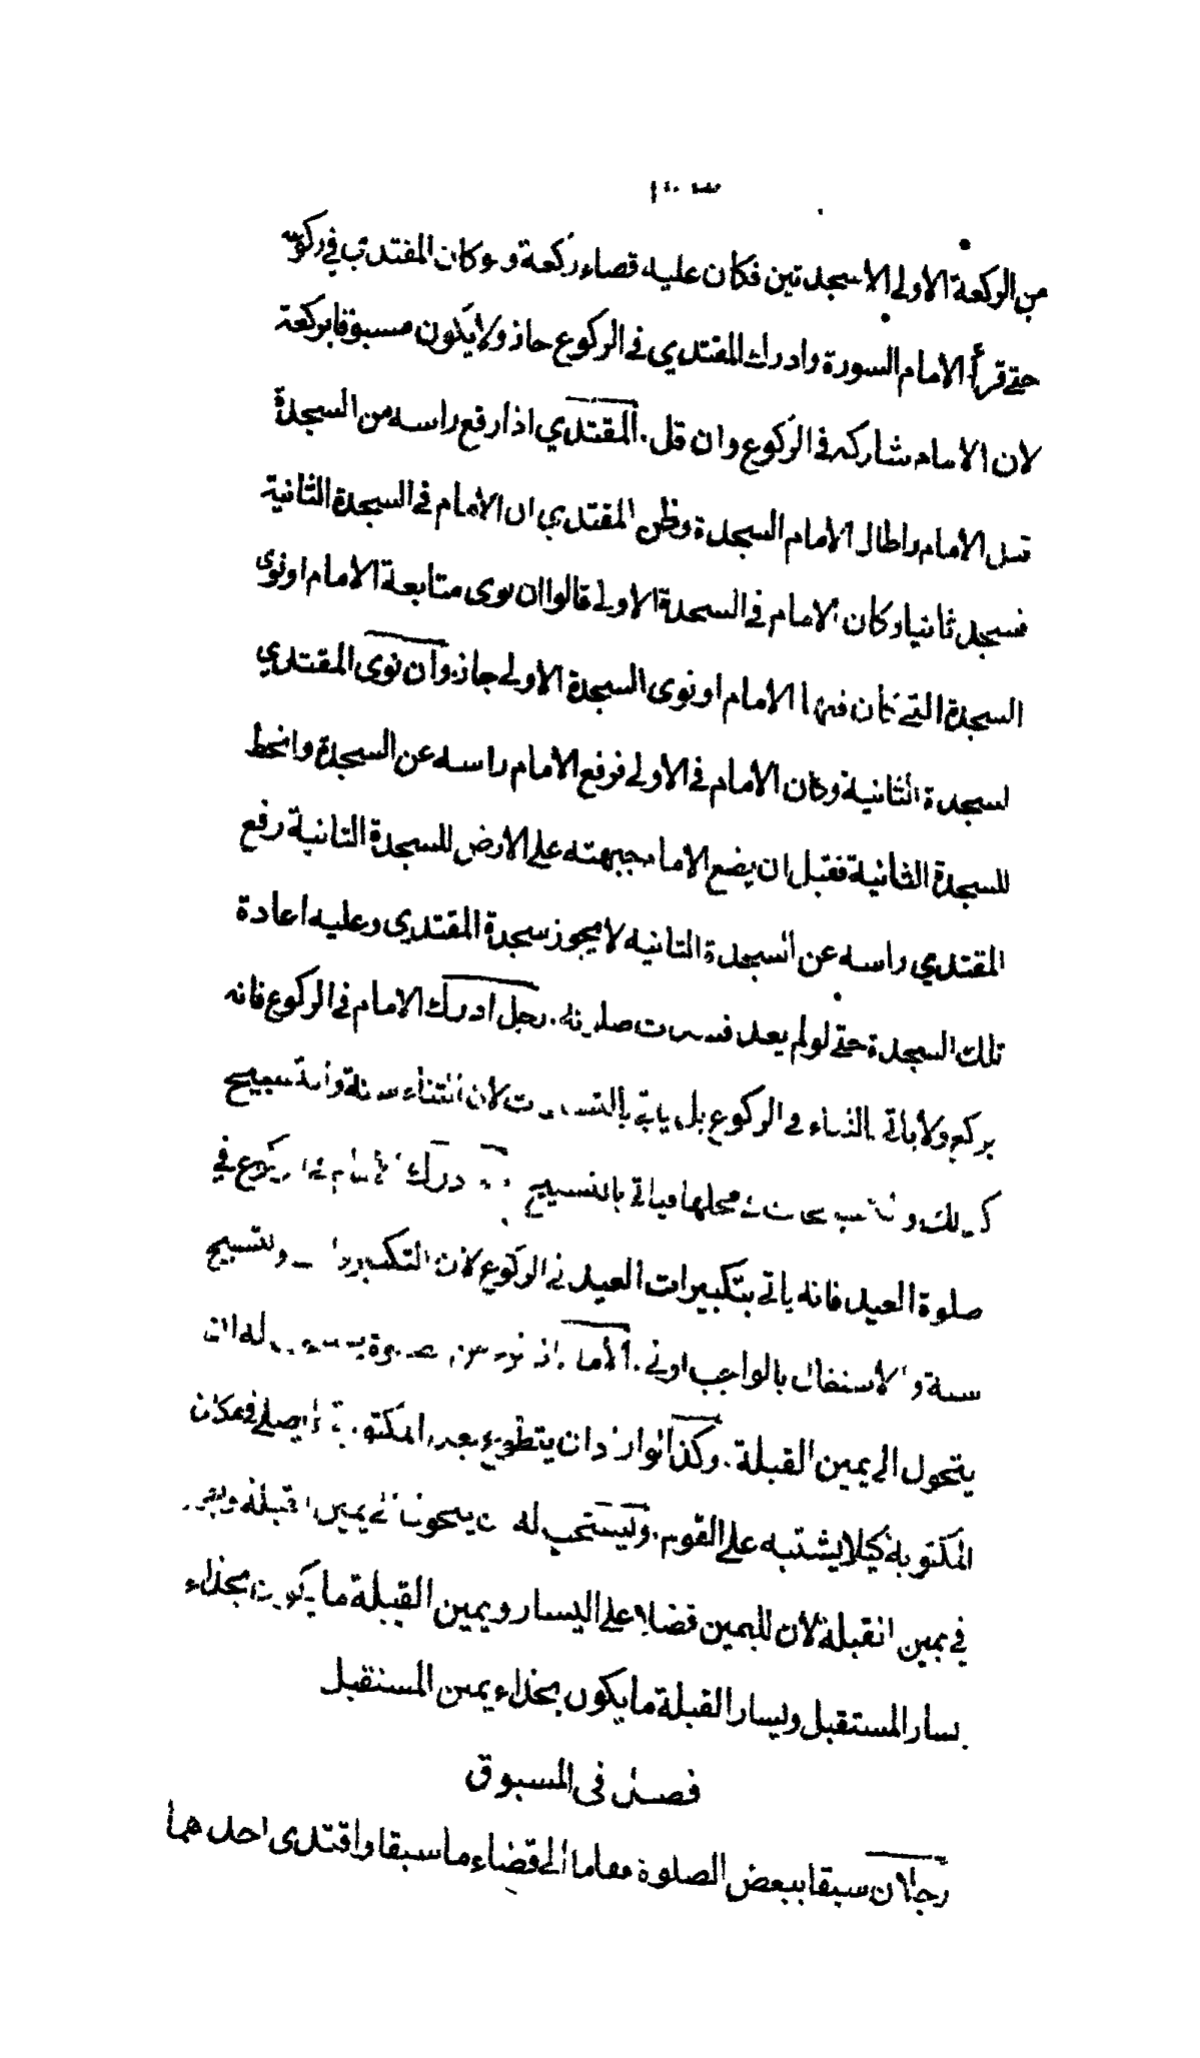 من الركعة الاولى الا سجدتين فكان عليه قضاء ركعة ولو كان المقتدي في ركوعه
حتى قرأ الامام السورة وادرك المقتدي في الركوع جاز ولا يكون مسبوقا بركعة
لان الامام شاركه في الركوع وان قل. المقتدي اذا رفع راسه من السجدة
قبل الامام واطال الامام السجدة وظن المقتدي ان الامام في السجدة الثانية
فسجد ثانيا وكان الامام في السجدة الاولى قالوا ان نوى متابعة الامام او نوى
السجدة التي كان فيها الامام او نوى السجدة الاولى جاز. وان نوى المقتدي
السجدة الثانية وكان الامام في الاولى فرفع الامام راسه عن السجدة وانحط
للسجدة الثانية فقبل ان يضع الامام جبهته على الارض للسجدة الثانية رفع
المقتدي راسه عن السجدة الثانية لا يجوز سجدة المقتدي وعليه اعادة
تلك السجدة حتى لو لم يعد فسدت صلوته. رجل ادرك الامام في الركوع فانه
يركع ولا ياتي بالثناء في الركوع بل ياتي بالتسبيحات لان الثناء سنة والتسبيح
كذلك و محلها فياتي بالتسبيح ادرك الامام في الركوع في
صلوة العيد فانه ياتي بتكبيرات العيد في الركوع لان التكبير والتسبيح
سنة والاشتغال بالواجب اولى. الامام اذا فرغ من صلوة يستحب له ان
يتحول الى يمين القبلة. وكذا لو اراد ان يتطوع بعد المكتوبة لا يصلي في مكان
المكتوبة كيلا يشتبه على القوم. ويستحب له ان يتحول الى يمين القبلة
في يمين القبلة لان لليمين فضلا على اليسار ويمين القبلة ما يكون بحذاء
يسار المستقبل ويسار القبلة ما يكون بحذاء يمين المستقبل
فصل في المسبوق
رجلان سبقا ببعض الصلوة فقاما الى قضاء ما سبقا واقتدى احدهما